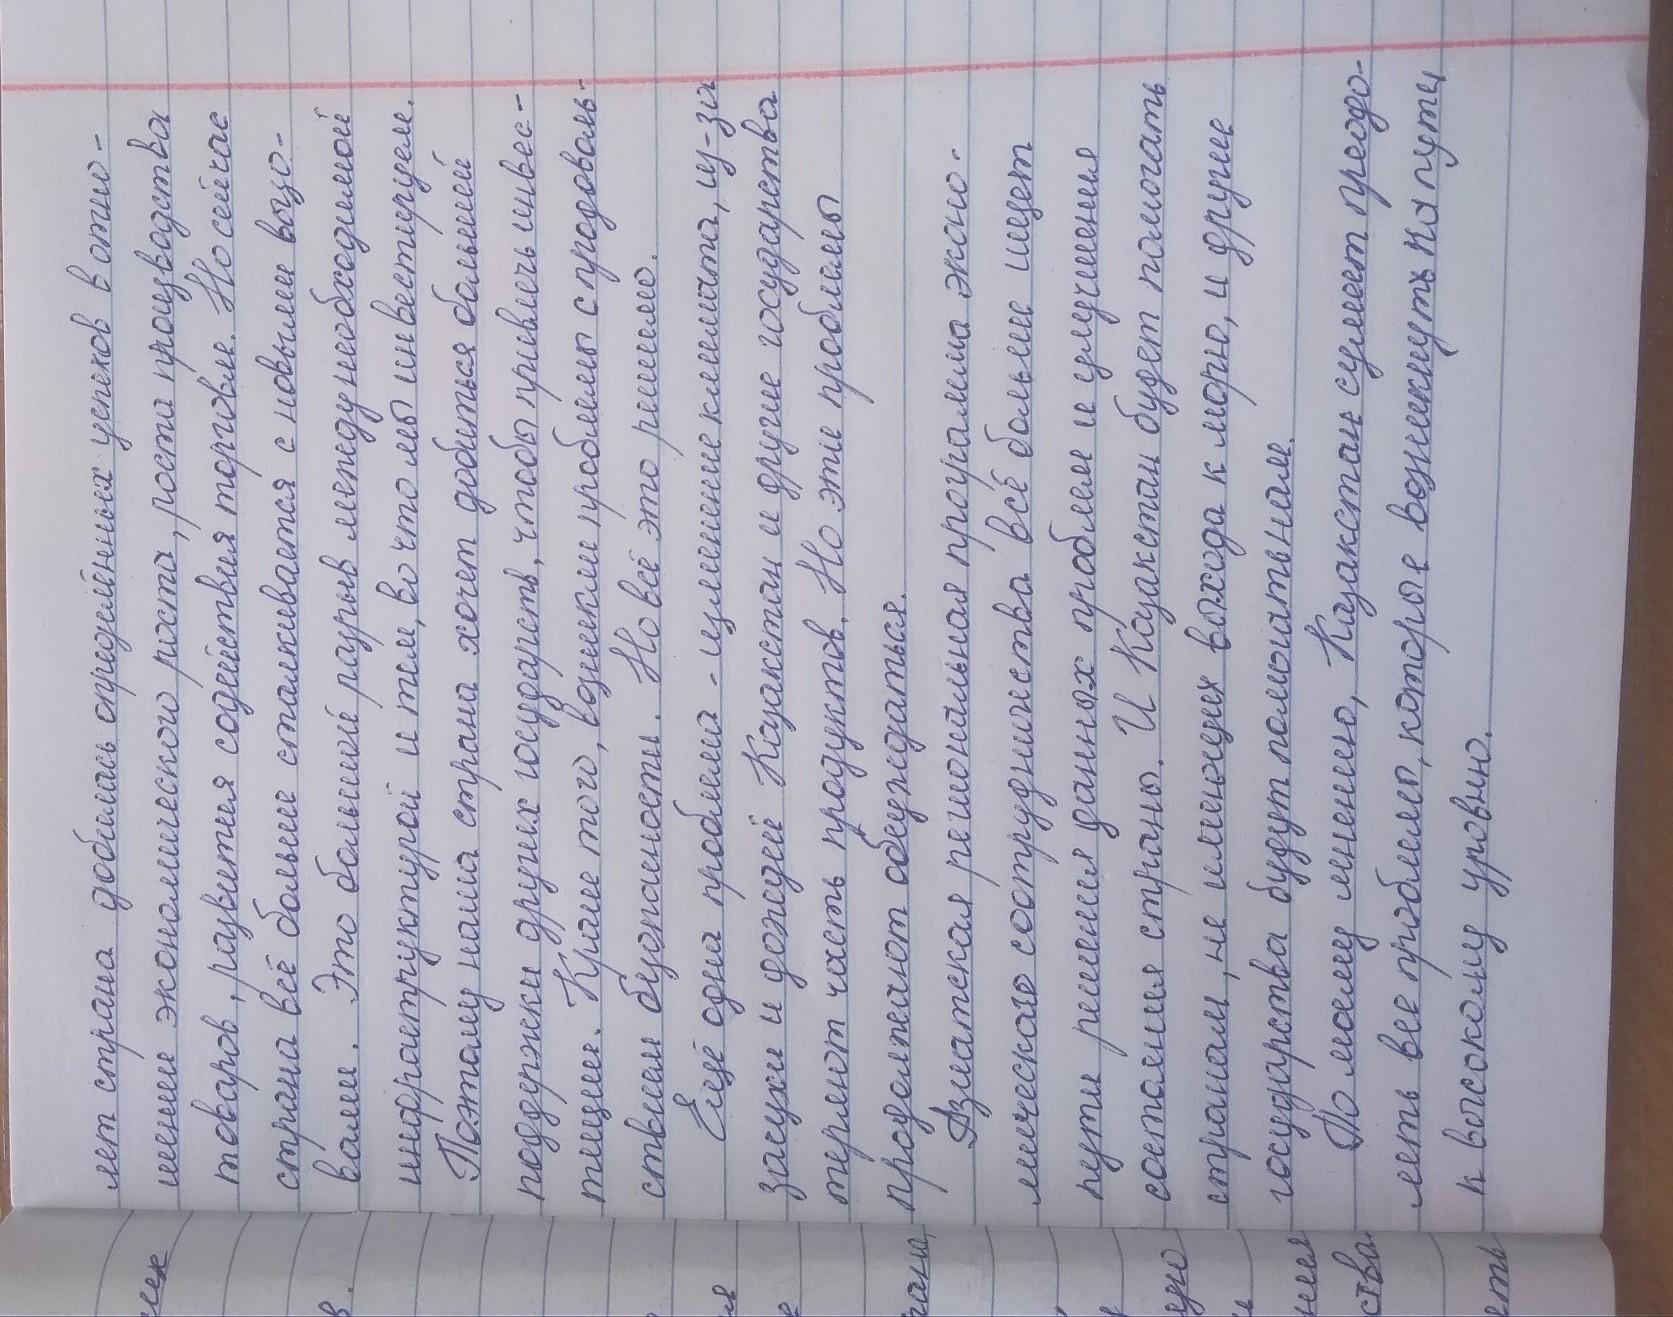 лет страна добилась определённых успехов в отно-
шении экономического роста, роста производства
товаров, развития содействия торговле. Но сейчас
страна всё больше сталкивается с новыми вызо-
вами. Это большой разрыв между необходимой
инфраструктурой и тем, во что мы инвестируем.
Поэтому наша страна хочет добиться большей
поддержки других государств, чтобы привлечь инвес-
тиции. Кроме того, возникли проблемы с продоволь-
ствием безопасности. Но всё это решимо.
Ещё одна проблема - изменение климата, из-за
засухи и дождей Казакстан и другие государства
теряют часть продуктов. Но эти проблемы
продолжают обсуждаться.
Азиатская региональная программа эконо-
мического сотрудничества всё больше ищет
пути решения данных проблем и улучшения
состояния страны. И Казакстан будет помогать
странам, не имеющих выхода к морю, и другие
государства будут помогать нам.
По моему мнению, Казакстан сумеет преодо-
леть все проблемы, которые возникнуть на пути
к высокому уровню.
в.
ствa